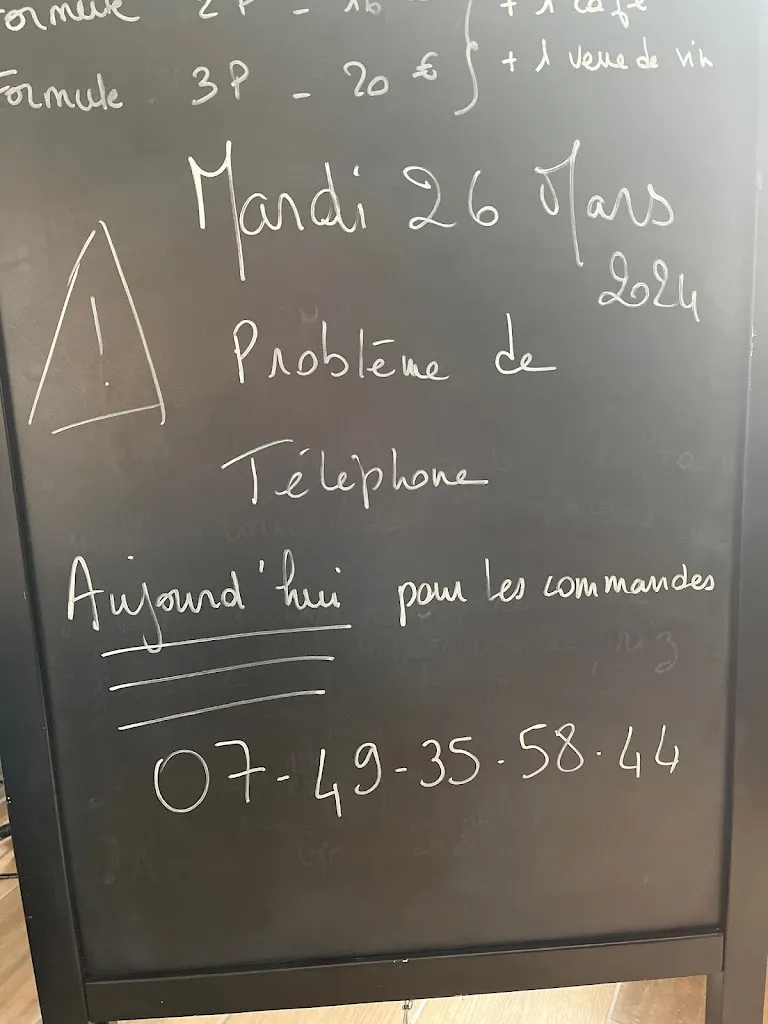 Formule 2P - 16 + 1 café
Formule 3P - 20 € + 1 verre de vin
Mardi 26 Mars
2024
!
Problème de
Téléphone
Aujourd'hui pour les commandes
07-49-35-58-44